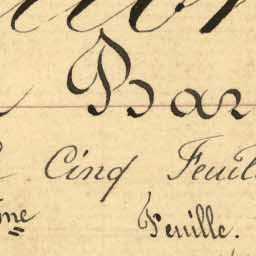 Bar
Cinq Feuil
me Feuille.